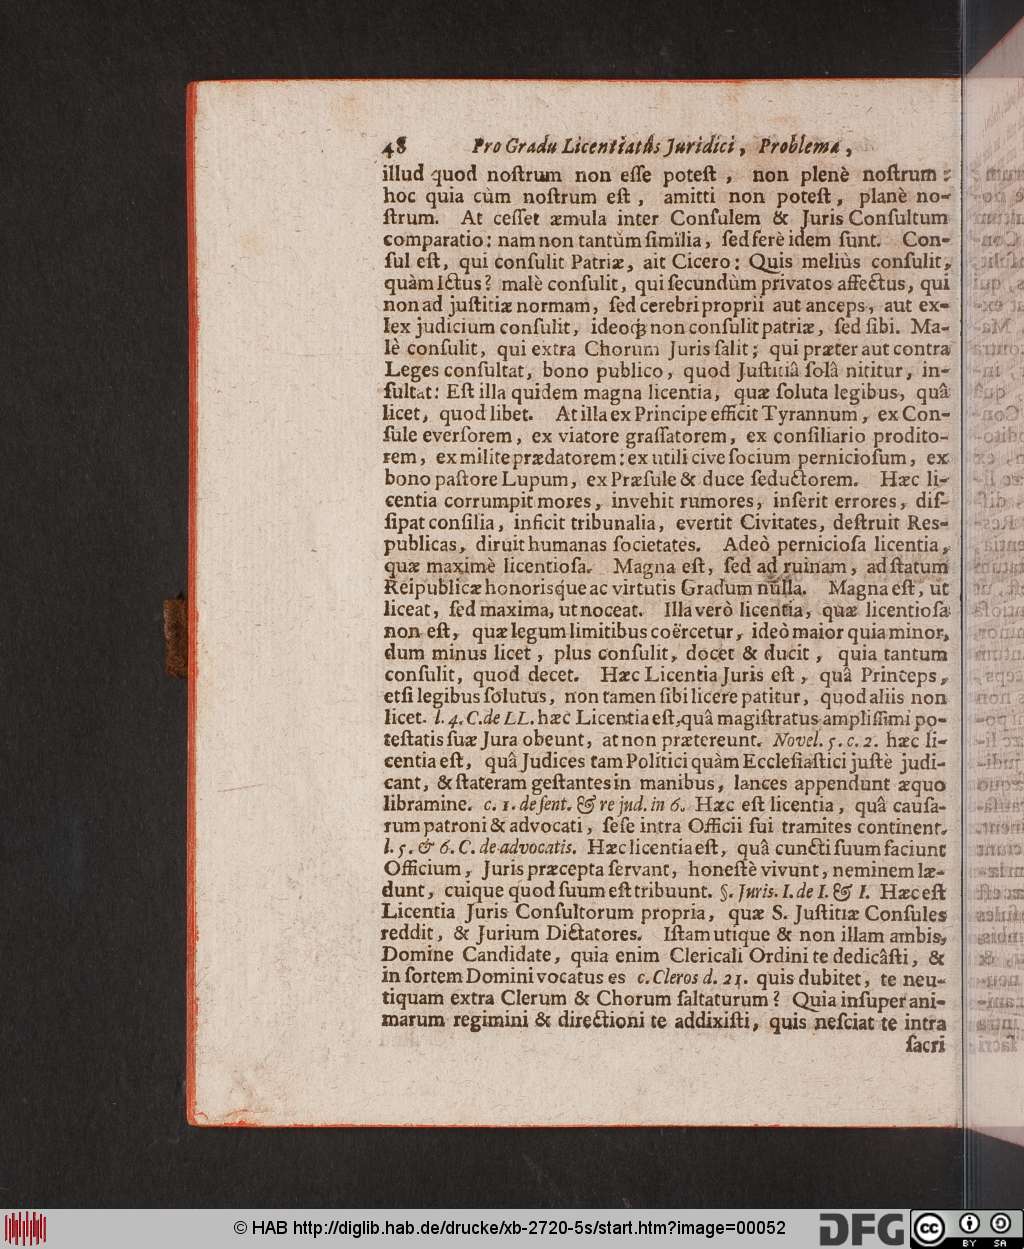 48 Pro Gradu Licentiatûs Juridici, Problema,
illud quod noſtrum non eſſe poteſt, non plenè noſtrum:
hoc quia cùm noſtrum eſt, amitti non poteſt, planè no-
ſtrum. At ceſſet æmula inter Conſulem & Juris Conſultum
comparatio: nam non tantùm ſimilia, ſed ferè idem ſunt. Con-
ſul eſt, qui conſulit Patriæ, ait Cicero: Quis meliùs conſulit,
quàm Ictus? malè conſulit, qui ſecundùm privatos affectus, qui
non ad juſtitiæ normam, ſed cerebri proprii aut anceps, aut ex-
lex judicium conſulit, ideoq; non conſulit patriæ, ſed ſibi. Ma-
lè conſulit, qui extra Chorum Juris ſalit; qui præter aut contra
Leges conſultat, bono publico, quod Juſtitiâ ſolâ nititur, in-
ſultat: Eſt illa quidem magna licentia, quæ ſoluta legibus, quâ
licet, quod libet. At illa ex Principe efficit Tyrannum, ex Con-
ſule everſorem, ex viatore graſſatorem, ex conſiliario prodito-
rem, ex milite prædatorem: ex utili cive ſocium pernicioſum, ex
bono paſtore Lupum, ex Præſule & duce ſeductorem. Hæc li-
centia corrumpit mores, invehit rumores, inſerit errores, diſ-
ſipat conſilia, inficit tribunalia, evertit Civitates, deſtruit Res-
publicas, diruit humanas ſocietates. Adeò pernicioſa licentia,
quæ maximè licentioſa. Magna eſt, ſed ad ruinam, ad ſtatum
Reipublicæ honorisque ac virtutis Gradum nulla. Magna eſt, ut
liceat, ſed maxima, ut noceat. Illa verò licentia, quæ licentioſa
non eſt, quæ legum limitibus coërcetur, ideò maior quia minor,
dum minus licet, plus conſulit, docet & ducit, quia tantum
conſulit, quod decet. Hæc Licentia Juris eſt, quâ Princeps,
etſi legibus ſolutus, non tamen ſibi licere patitur, quod aliis non
licet. l. 4. C. de LL. hæc Licentia eſt, quâ magiſtratus ampliſſimi po-
teſtatis ſuæ Jura obeunt, at non prætereunt. Novel. 5. c. 2. hæc li-
centia eſt, quâ Judices tam Politici quàm Eccleſiaſtici juſtè judi-
cant, & ſtateram geſtantes in manibus, lances appendunt æquo
libramine. c. 1. de ſent. & re jud. in 6. Hæc eſt licentia, quâ cauſa-
rum patroni & advocati, ſeſe intra Officii ſui tramites continent.
l. 5. & 6. C. de advocatis. Hæc licentia eſt, quâ cuncti ſuum faciunt
Officium, Juris præcepta ſervant, honeſtè vivunt, neminem læ-
dunt, cuique quod ſuum eſt tribuunt. §. Juris. I. de I. & I. Hæc eſt
Licentia Juris Conſultorum propria, quæ S. Juſtitiæ Conſules
reddit, & Jurium Dictatores. Iſtam utique & non illam ambis,
Domine Candidate, quia enim Clericali Ordini te dedicâſti, &
in ſortem Domini vocatus es c. Cleros d. 21. quis dubitet, te neu-
tiquam extra Clerum & Chorum ſaltaturum? Quia inſuper ani-
marum regimini & directioni te addixiſti, quis neſciat te intra
ſacri
© HAB http://diglib.hab.de/drucke/xb-2720-5s/start.htm?image=00052
DFG
cc BY SA